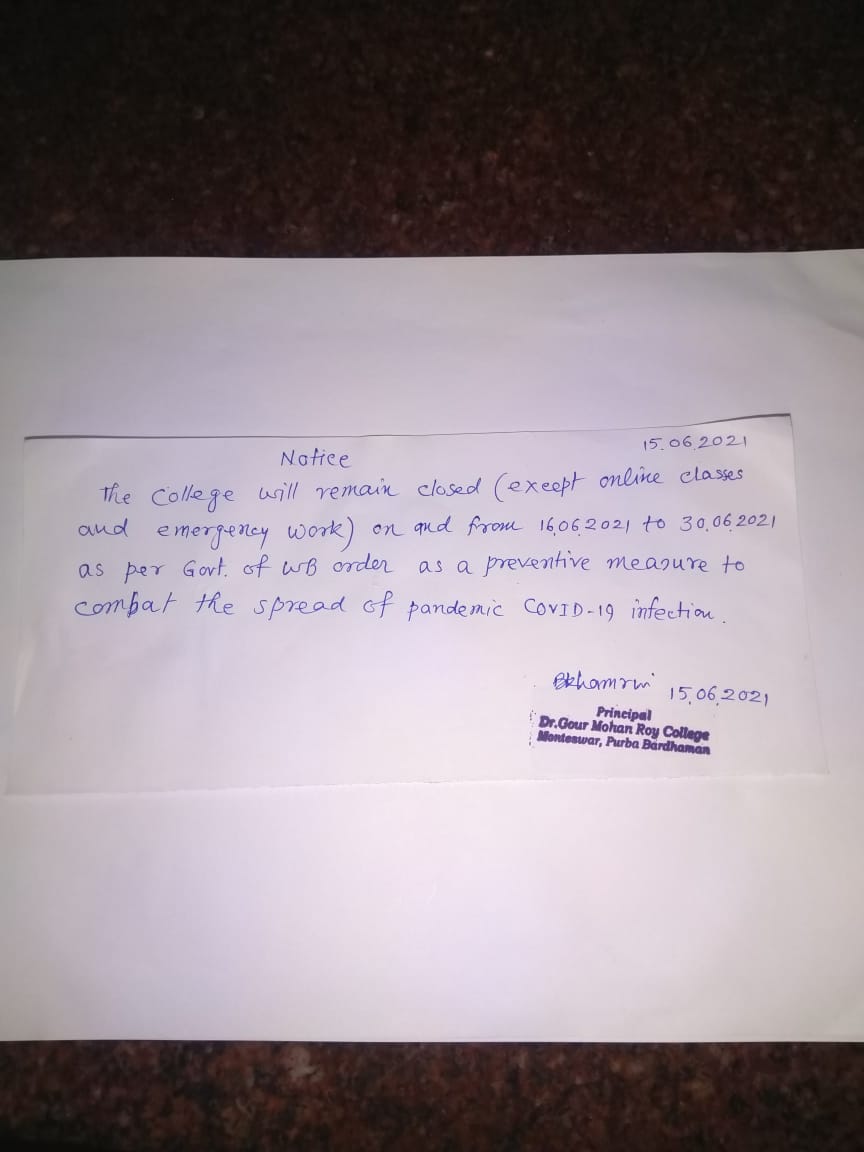 15.06.2021
Notice
The College will remain closed (except online classes
and emergency work) on and from 16.06.2021 to 30.06.2021
as per Govt. of WB order as a preventive measure to
combat the spread of pandemic COVID-19 infection.
15.06.2021
Principal
Dr.Gour Mohan Roy College
Monteswar, Purba Bardhaman